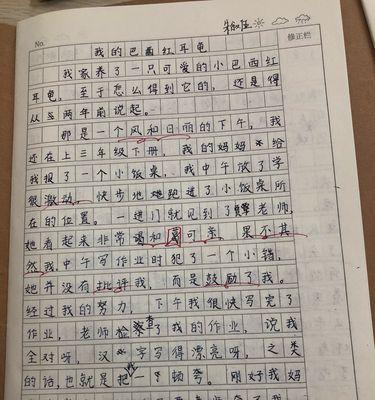 No.
修正栏
我的巴西红耳龟
我家养了一只可爱的小巴西红
耳龟，至于怎么得到它的，还是得
从两年前说起。
那是一个风和日丽的下午，我
还在上三年级下册，我的妈妈给
我报了一个小饭桌，我中午放了学
很激动，快步地跑进了小饭桌所
在的位置。一进门就见到了老师，
她看起来非常和蔼可亲，果不其
然我中午写作业时犯了一个小错，
她并没有批评我，而是鼓励了我。
经过我的努力，下午我很快写完了
作业，老师检查了我的作业，说我
全对呀，汉字写得漂亮呀，之类
的话，也就是把我一顿夸。刚好我妈